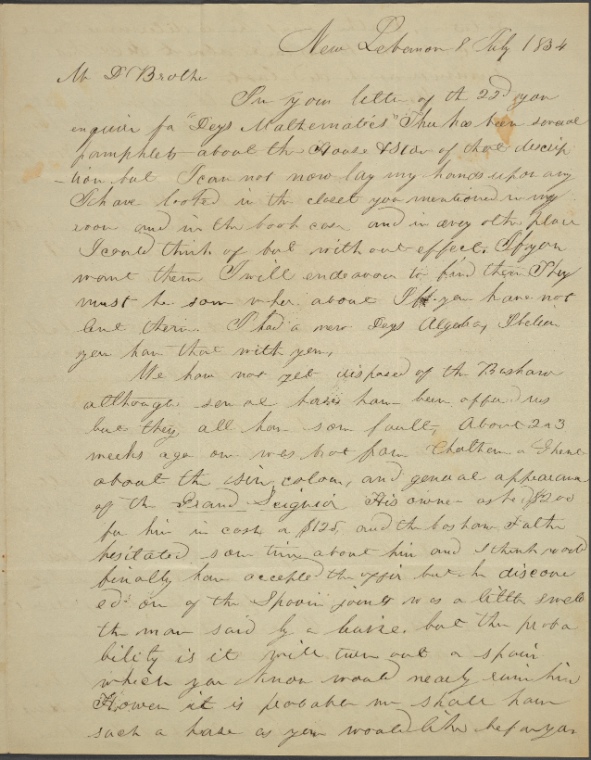 New Lebanon 8 July 1834
My Dr Brothe
In your letter of the 22d you
enquire for "Days Mathematics" There has been several
pamphlets about the House & Stor of that descrip
-tion but I can not now lay my hands upon any
I have looked in the closet you mentioned in my
room and in the book case and in every other place
I could think of but without effect. If you
want them I will endeavour to find them They
must be some where about If you have not
lent them. I had a new Days Algebra, I believe
you have that with you.
We have not yet disposed of the Bashaw
although several horses have been offered us
but they all have some fault. About 2 or 3
weeks ago one was brot from Chatham a
about the size, colour, and general appearance
of the Grand Seignior His owner asked $200
for him in cash or $125, and the bashaw. Father
hesitated some time about him and I think would
finally have accepted the offer but he discover
ed one of the Spavin joints was a little sweld
the man said by a bruise. but the proba
bility is it will turn out a spavin
which you know would nearly ruin him
However it is probable we shall have
such a horse as you would like before you